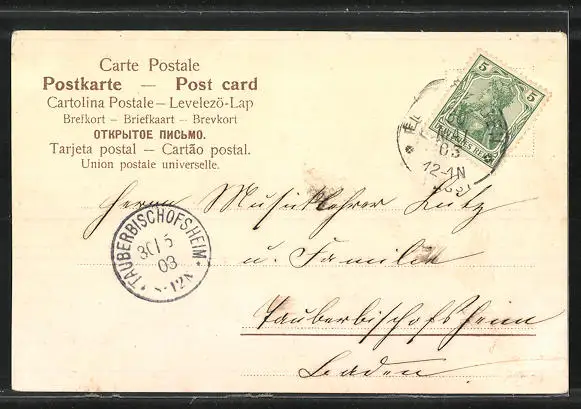 Carte Postale
Postkarte — Post card
Cartolina Postale – Levelező-Lap
Brefkort – Briefkaart – Brevkort
ОТКРЫТОЕ ПИСЬМО.
Tarjeta postal – Cartão postal.
Union postale universelle.
5 5
03
12-1N
TAUBERBISCHOFSHEIM
03
-12N
Herrn Musiklehrer Lutz
u. Familie
Tauberbischofsheim
Baden